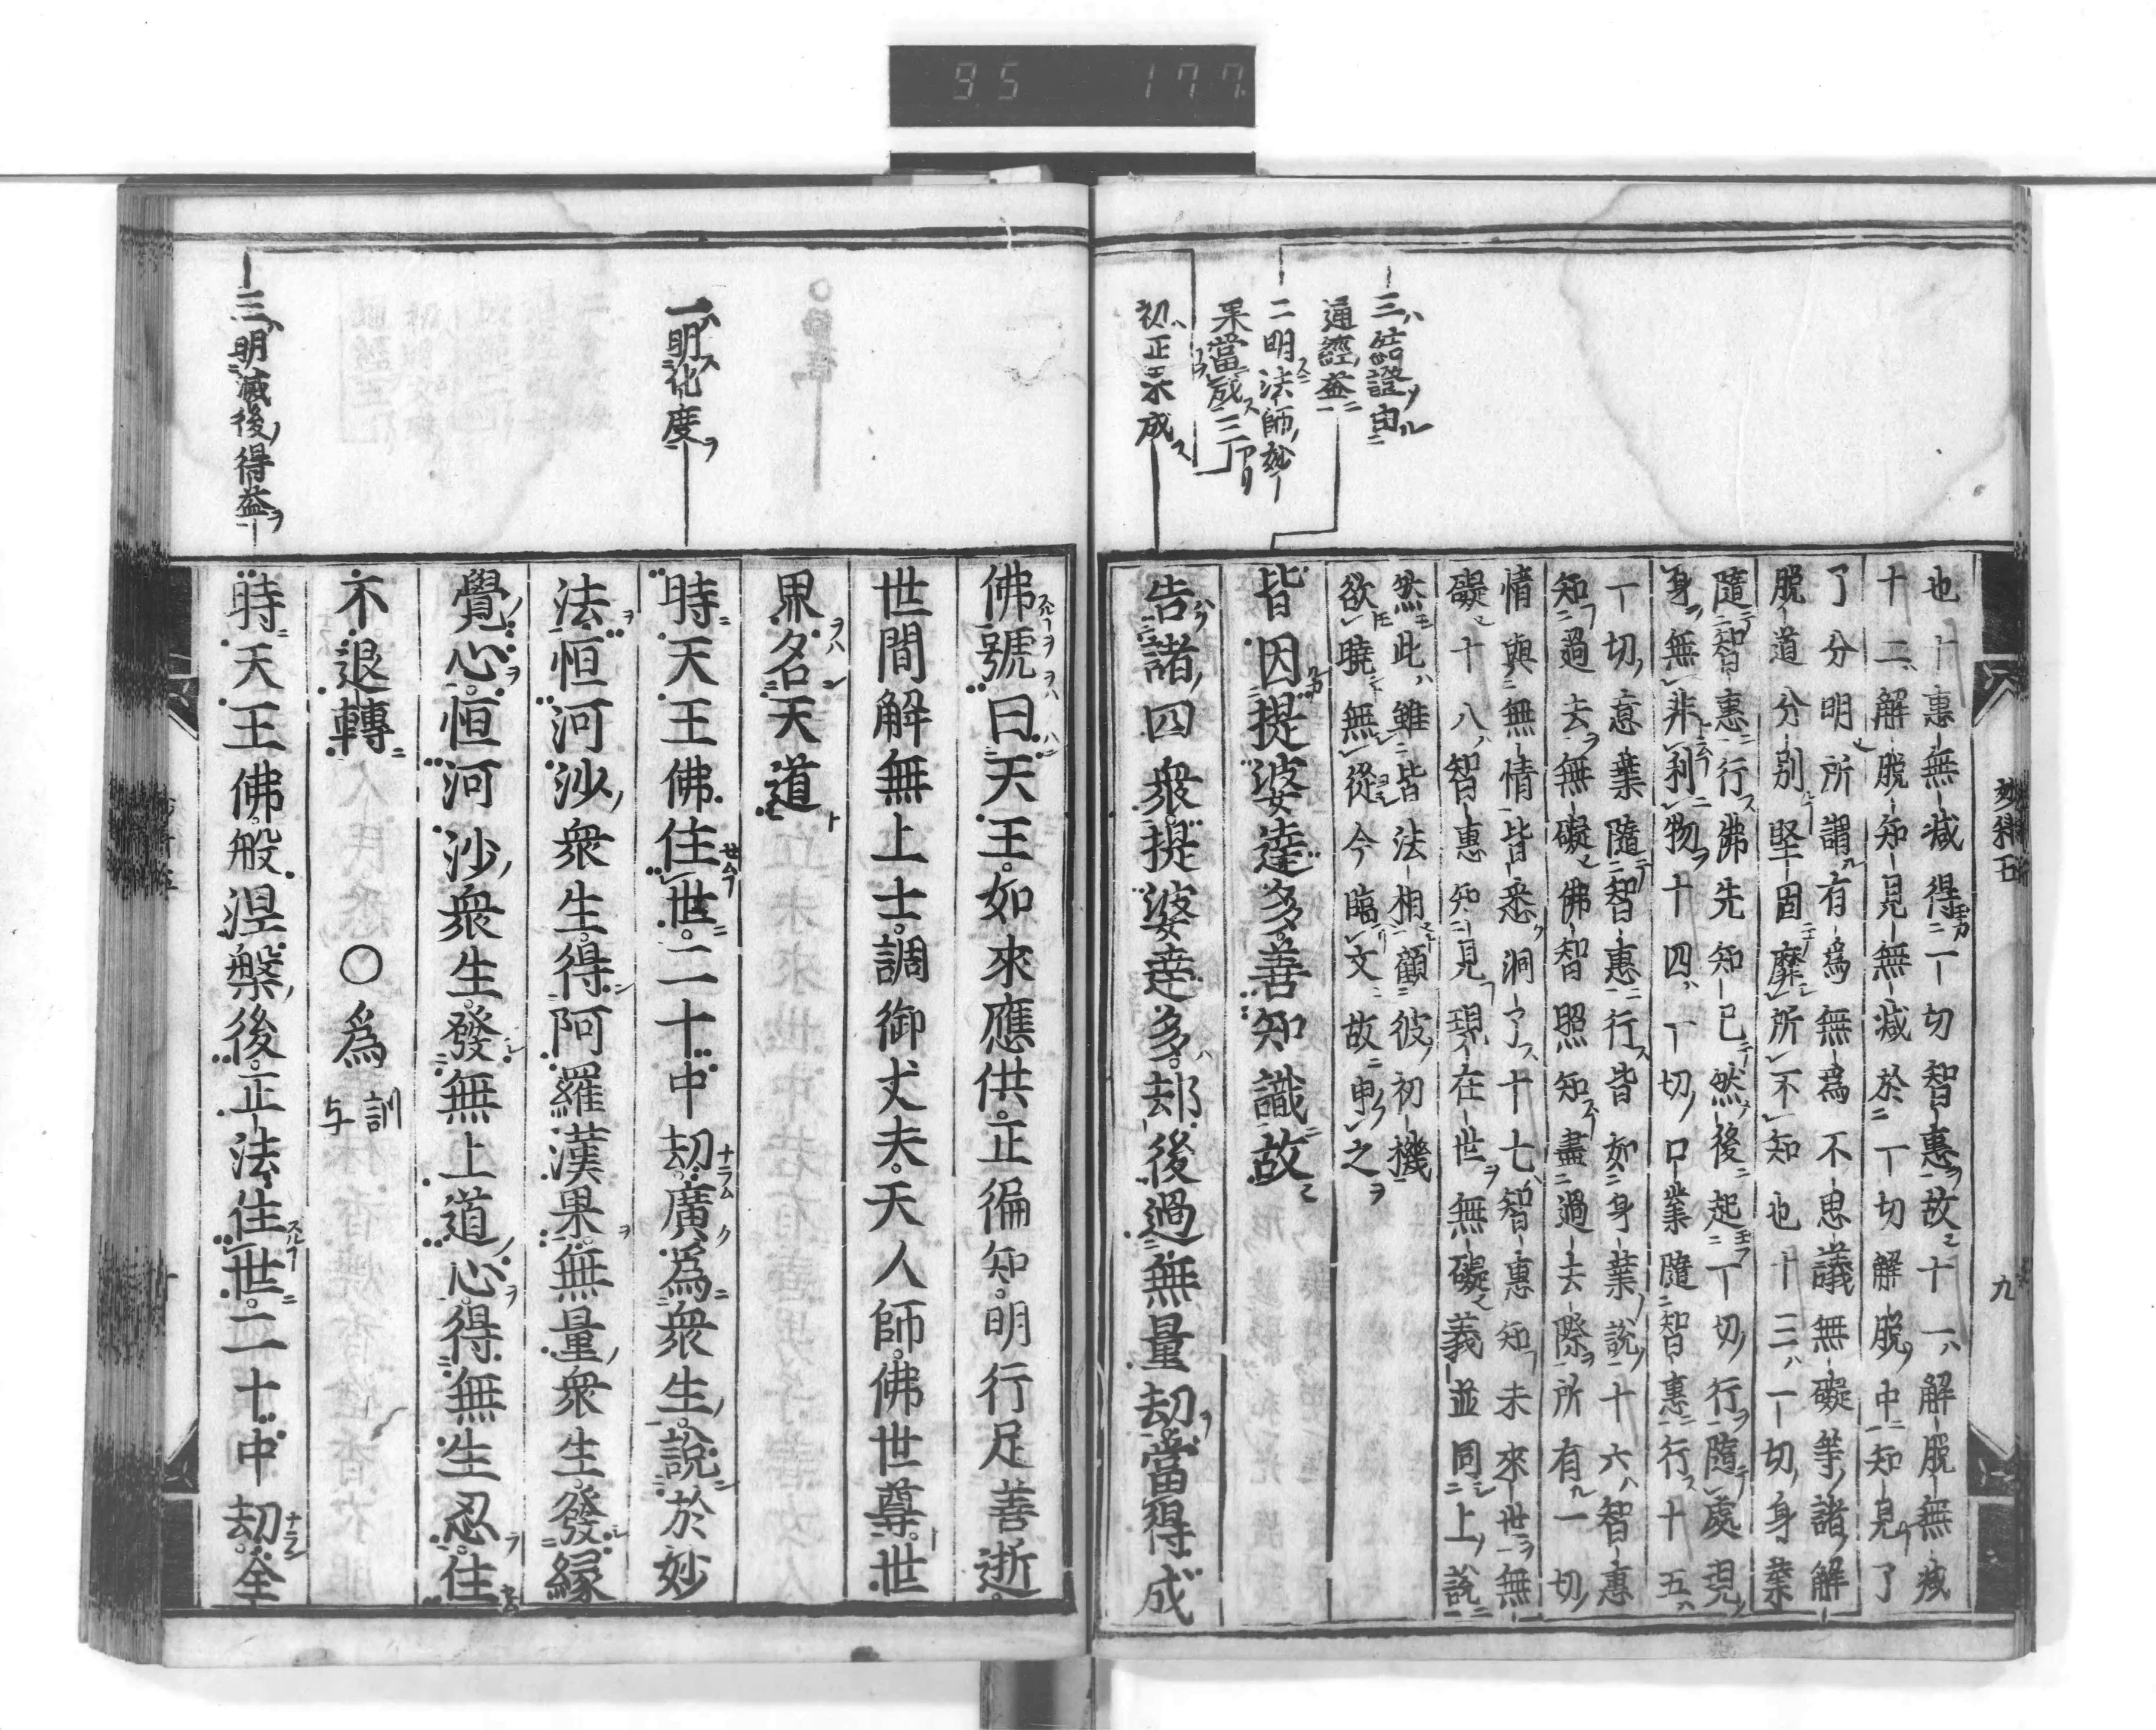 95 177
三結證由
通經益
二明法師妙
果當成三
初正示成
也十惠無減得一切智惠故十一解脱無減
十二解脱知見無減於一切解脱中知見了
了分明所謂有爲無爲不思議無礙等諸解
脱道分別堅固靡所不知也十三一切身業
隨智惠行佛先知已然後起一切行隨處現
身無非利物十四一切口業隨智惠行十五
一切意業隨智惠行皆如身業説十六智惠
知過去無礙佛智照知盡過去際所有一切
情與無情皆悉洞了十七智惠知未來世無
礙十八智惠知見現在世無礙義並同上説
然此雖皆法相顧彼初機
欲曉無從今臨文故申之
皆因提婆達多善知識故
告諸四衆提婆達多却後過無量劫當得成
九
一明化度
三明滅後得益
佛號曰天王如來應供正徧知明行足善逝
世間解無上士調御丈夫天人師佛世尊世
界名天道
時天王佛住世二十中劫廣爲衆生説於妙
法恒河沙衆生得阿羅漢果無量衆生發縁
覺心恒河沙衆生發無上道心得無生忍住
不退轉 ○爲訓与
時天王佛般涅槃後正法住世二十中劫全